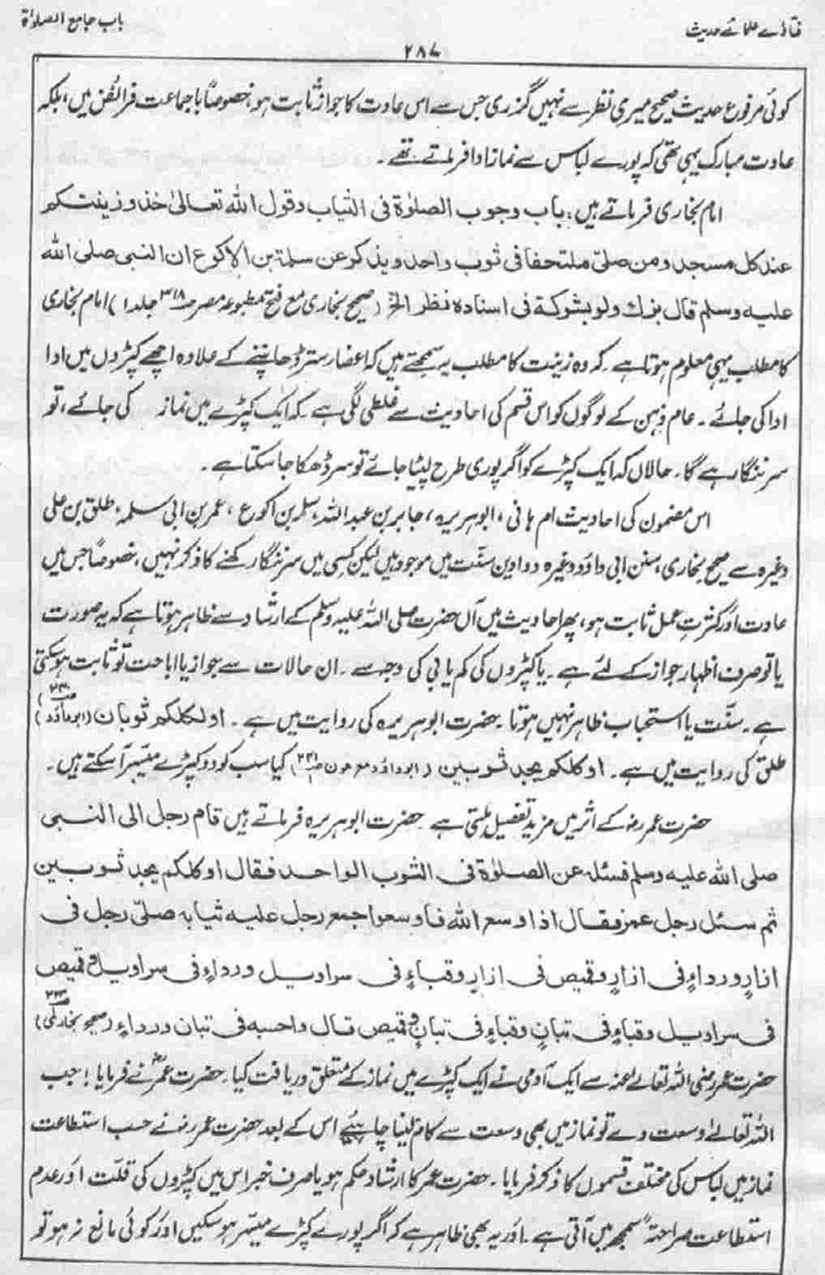 فتاوے علمائے حدیث
باب جامع الصلوٰۃ
۲۸۷
کوئی مرفوع حدیث صحیح میری نظر سے نہیں گزری جس سے اس عادت کا جواز ثابت ہو، خصوصاً باجماعت فرائض میں، بلکہ
عادت مبارک یہی تھی کہ پورے لباس سے نماز ادا فرماتے تھے۔
امام بخاری فرماتے ہیں، باب وجوب الصلوٰۃ فی الثیاب وقول اللہ تعالیٰ خذوا زینتکم
عند کل مسجد ومن صلی ملتحفا فی ثوب واحد ویذکر عن سلمۃ بن الاکوع ان النبی صلی اللہ
علیہ وسلم قال یزرہ ولو بشوکۃ فی اسنادہ نظر الخ (صحیح بخاری مع فتح مطبوعہ مصر ص۳۱۸ جلد ۱) امام بخاری
کا مطلب یہی معلوم ہوتا ہے۔ کہ وہ زینت کا مطلب یہ سمجھتے ہیں کہ اعضار ستر ڈھانپنے کے علاوہ اچھے کپڑوں میں ادا
ادا کی جائے۔ عام ذہن کے لوگوں کو اس قسم کی احادیث سے غلطی لگی ہے کہ ایک کپڑے میں نماز کی جائے، تو
سر ننگا رہے گا۔ حالاں کہ ایک کپڑے کو اگر پوری طرح لپٹا جائے تو سر ڈھکا جا سکتا ہے۔
اس مضمون کی احادیث ام ہانی، ابوہریرہ، جابر بن عبداللہ، سلمہ بن اکوع، عمر بن ابی سلمہ، طلق بن علی
وغیرہ سے صحیح بخاری، سنن ابی داؤد وغیرہ دواوین سنّت میں موجود ہیں لیکن کسی میں سر ننگا رکھنے کا ذکر نہیں، خصوصاً جس میں
عادت اور کثرتِ عمل ثابت ہو، پھر احادیث میں آں حضرت صلی اللہ علیہ وسلم کے ارشاد سے ظاہر ہوتا ہے کہ یہ صورت
یا تو صرف اظہار جواز کے لئے ہے۔ یا کپڑوں کی کم یابی کی وجہ سے۔ ان حالات سے جواز یا اباحت تو ثابت ہو سکتی
ہے۔ سنّت یا استحباب ظاہر نہیں ہوتا۔ حضرت ابوہریرہ کی روایت میں ہے۔ اولکلکم ثوبان (ابوداؤد)
طلق کی روایت میں ہے۔ اوکلکم یجد ثوبین (ابوداؤد مع عون) کیا سب کو دو کپڑے میسّر آ سکتے ہیں۔
حضرت عمر رضہ کے اثر میں مزید تفصیل ملتی ہے۔ حضرت ابوہریرہ فرماتے ہیں قام رجل الی النبی
صلی اللہ علیہ وسلم فسئلہ عن الصلوٰۃ فی الثوب الواحد فقال اوکلکم یجد ثوبین
ثم سئل رجل عمر فقال اذا وسع اللہ فاوسعوا جمع رجل علیہ ثیابہ صلیّ رجل فی
ازارٍ ورداءٍ فی ازارٍ وقمیص فی ازارٍ وقباءٍ فی سرادیل ورداءٍ فی سرادیل وقمیص
فی سرادیل وقباءٍ فی تبانٍ وقباءٍ فی تبانٍ وقمیص قال واحسبہ فی تبان ورداءٍ (صحیح بخاری)
حضرت عمر رضی اللہ تعالےٰ عنہ سے ایک آدمی نے ایک کپڑے میں نماز کے متعلق دریافت کیا۔ حضرت عمرؓ نے فرمایا! جب
اللہ تعالےٰ وسعت دے تو نماز میں بھی وسعت سے کام لینا چاہیئے اس کے بعد حضرت عمر رضہ نے حسب استطاعت
نماز میں لباس کی مختلف قسموں کا ذکر فرمایا۔ حضرت عمر کا ارشاد حکم ہو یا صرف خبر اس میں کپڑوں کی قلّت اور عدم
استطاعت صراحتہً سمجھ میں آتی ہے۔ اور یہ بھی ظاہر ہے کہ اگر پورے کپڑے میسّر ہو سکیں اور کوئی مانع نہ ہو تو